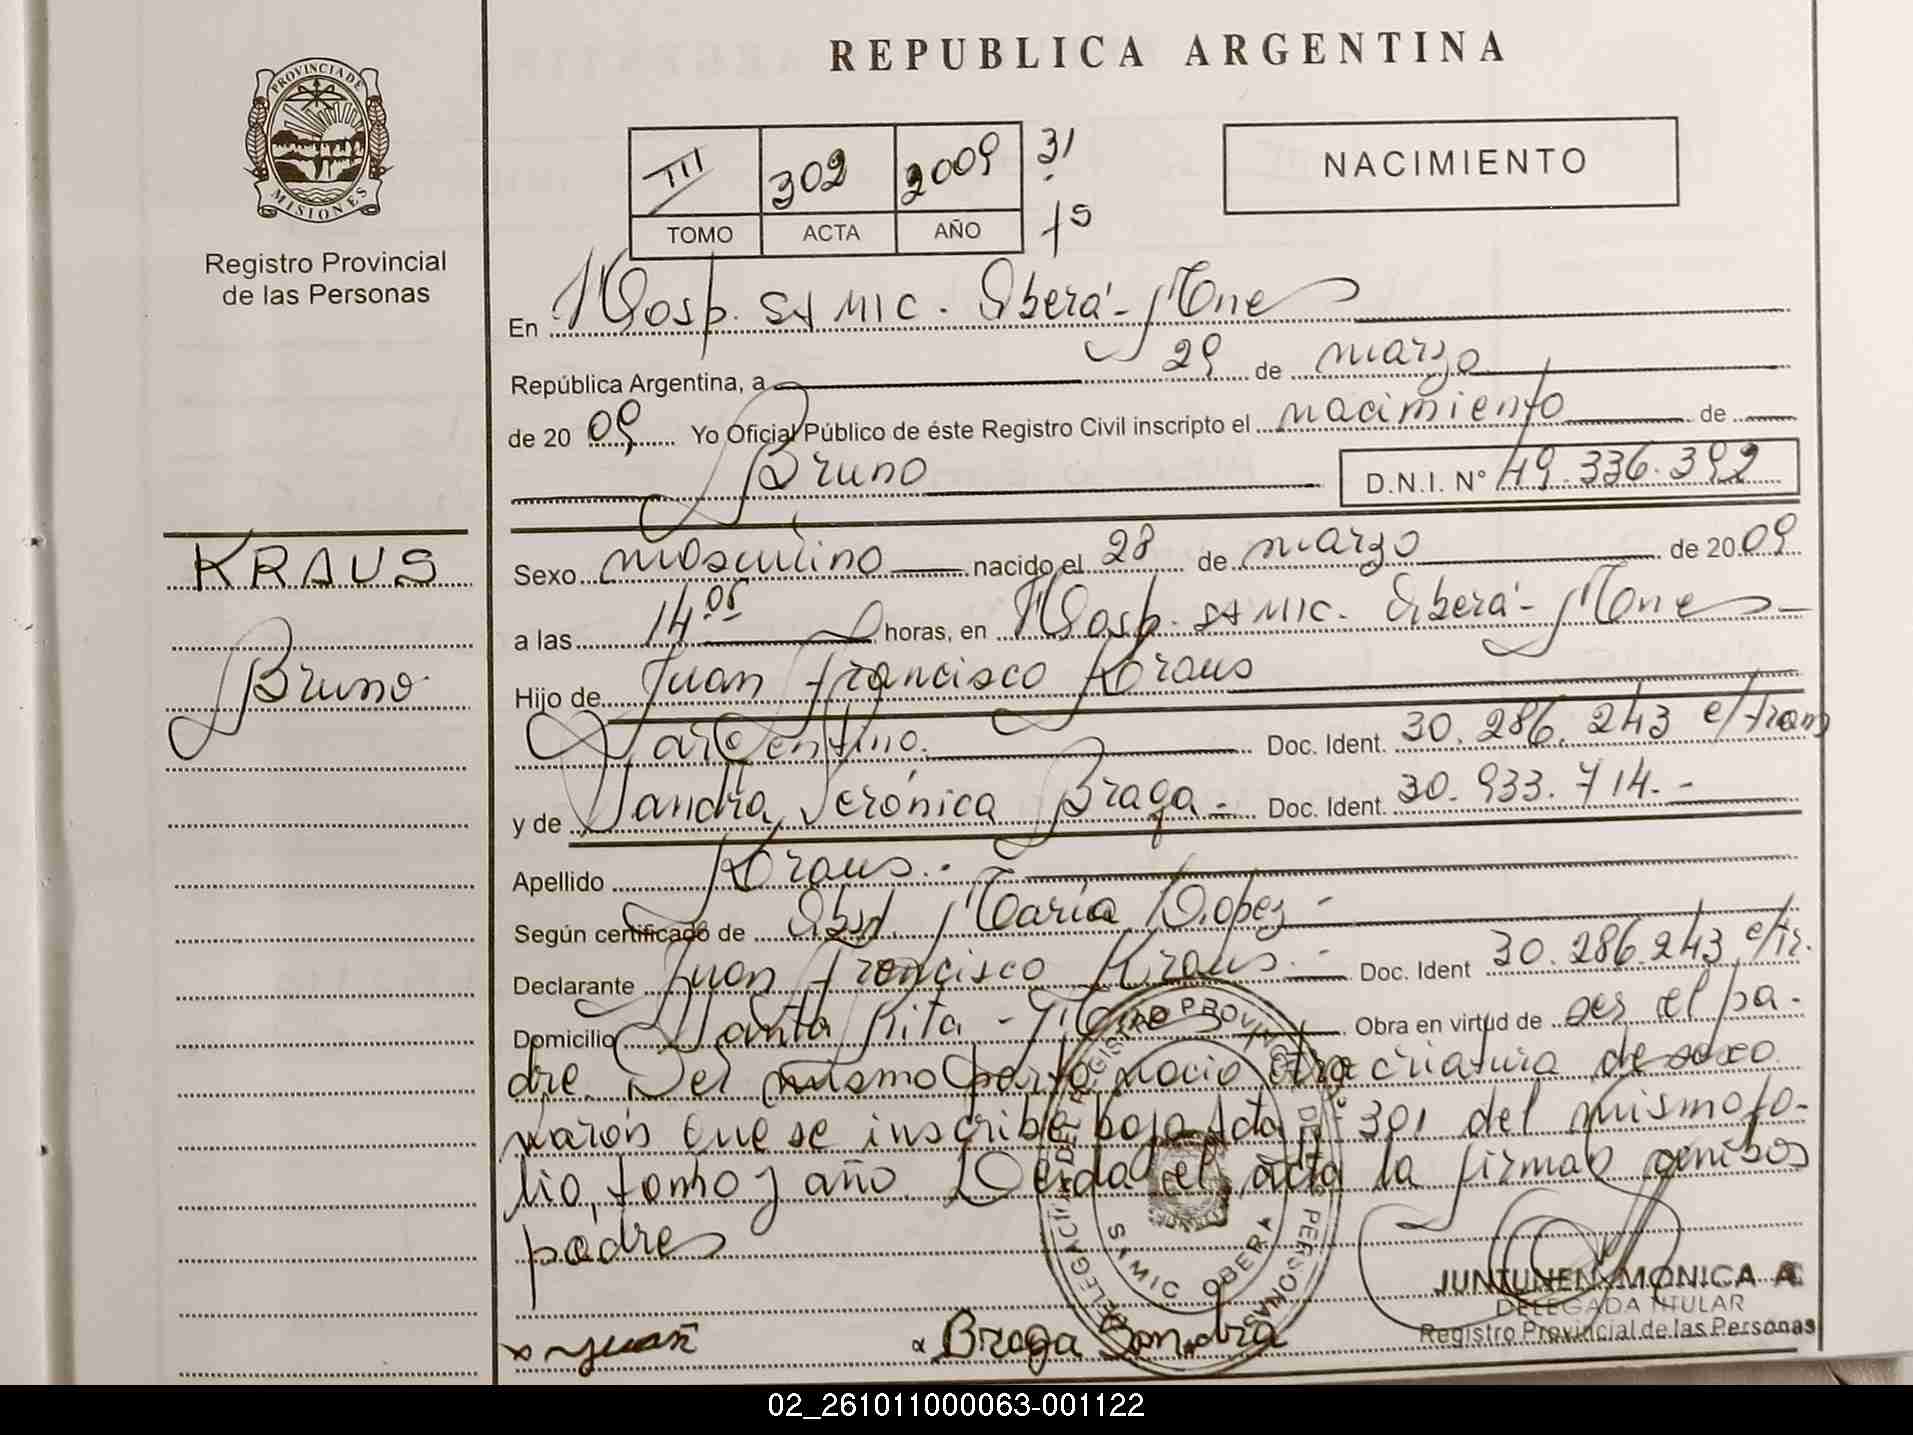 REPUBLICA ARGENTINA
PROVINCIA DE MISIONES
Registro Provincial
de las Personas
III 302 2009 31
TOMO ACTA AÑO 15
NACIMIENTO
En Hosp. SAMIC. Oberá - Mnes
República Argentina, a 29 de marzo
de 20 09 Yo Oficial Público de éste Registro Civil inscripto el nacimiento de
Bruno D.N.I. N° 49.336.392
KRAUS
Bruno
Sexo masculino nacido el 28 de marzo de 20 09
a las 14 05 horas, en Hosp. SAMIC. Oberá - Mnes -
Hijo de Juan Francisco Kraus
argentino. Doc. Ident. 30.286.243 e/tram
y de Sandra Verónica Braga - Doc. Ident. 30.933.714.-
Apellido Kraus.-
Según certificado de Obst. María López -
Declarante Juan Francisco Kraus.- Doc. Ident 30.286.243 e/tr.
Domicilio Santa Rita - Obra en virtud de ser el pa-
dre. Del mismo parto nació otra criatura de sexo
varón que se inscribe bajo Acta n° 301 del mismo fo-
lio, tomo y año. Leída el acta la firman ambos
padres
x Juan x Braga Sandra
DELEGACION DEL REGISTRO PROVINCIAL DE LAS PERSONAS
SAMIC OBERA
JUNTUNEN MONICA A
DELEGADA TITULAR
Registro Provincial de las Personas
02_261011000063-001122